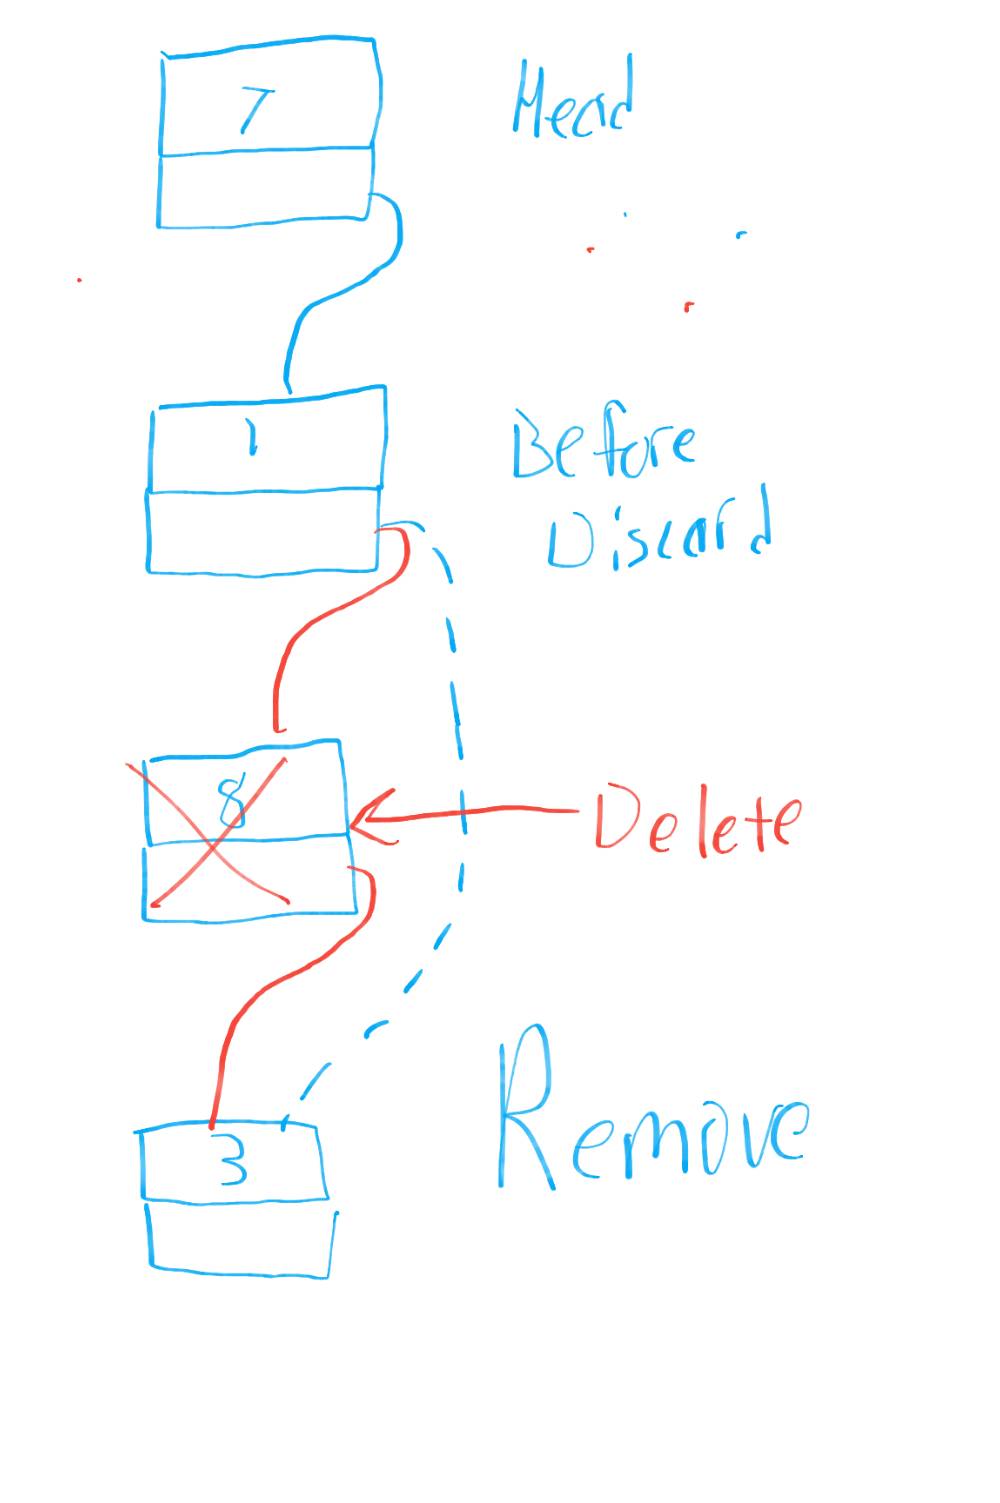 7
Head
1
Before
Discard
8
Delete
3
Remove